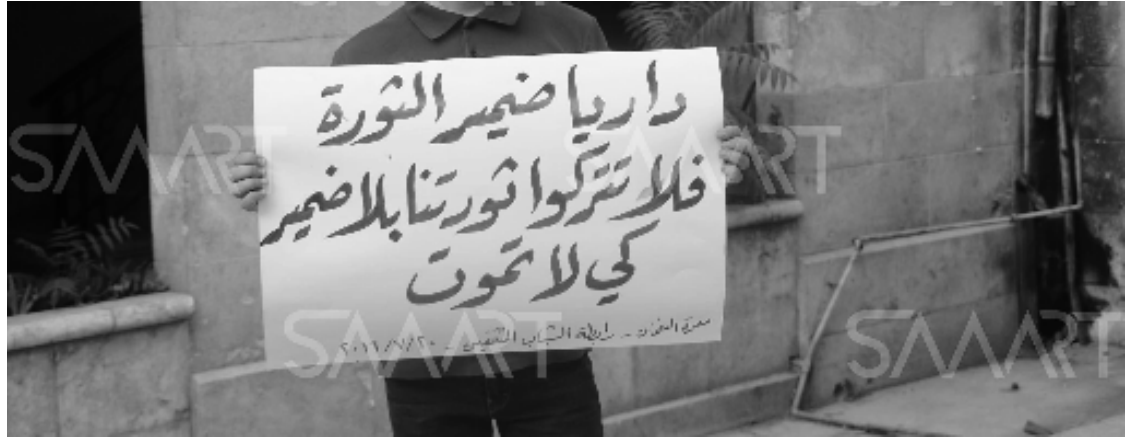 داريا ضمير الثورة
فلا تتركوا ثورتنا بلا ضمير
كي لا تموت
معرة النعمان - رابطة الشباب المثقفين - ٢٠١٦/٧/٢٠
SMART
SMART
SMART
SMART
SMART